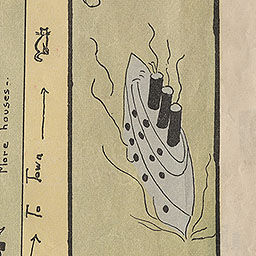 More houses..
To Town